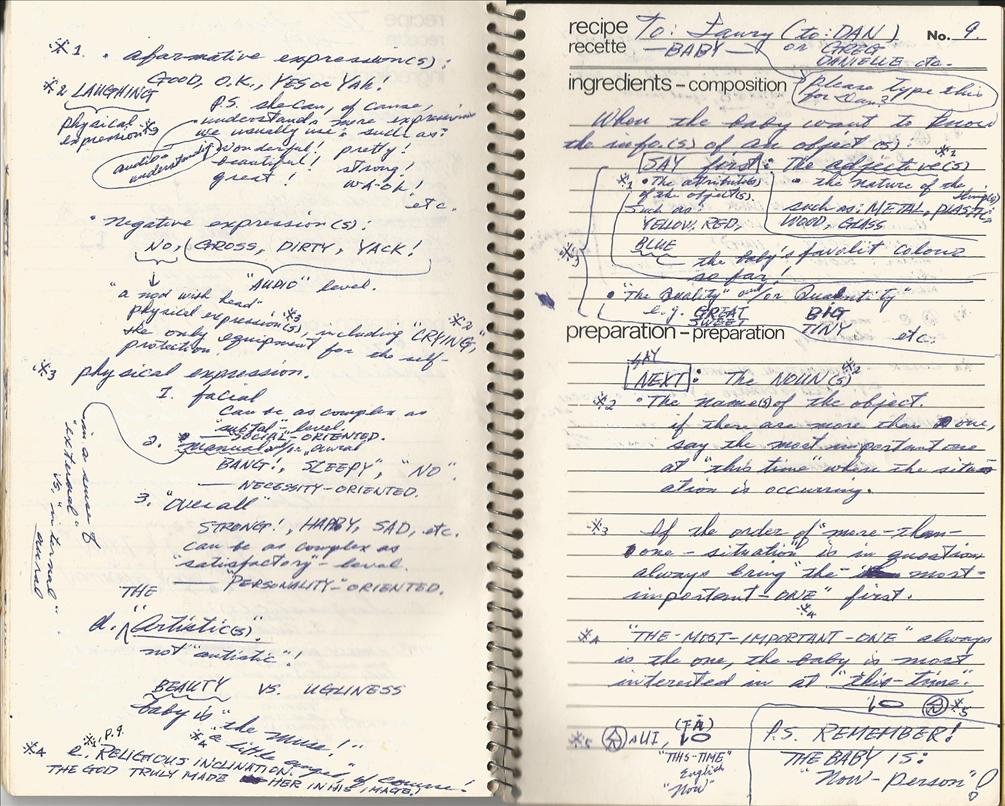 ※1. • afarmative expression(s):
GOOD, O.K., YES or YAH!
※2 LAUGHING
physical
expression※3
P.S. she can, of cause,
understands more expression
we usually use; such as:
wonderful! pretty!
beautiful! strong!
great!
etc.
audio
understand
• negative expression(s):
NO, GROSS, DIRTY, YACK!
"AUDIO" level.
"a nod with head"
physical expression(s)※3, including "CRYING,"※2
the only equipment for the self-
protection.
※3 physical expression.
1. facial
Can be as complex as
level.
— SOCIAL-ORIENTED.
2. manual
BANG!, SLEEPY", "NO".
— NECESSITY-ORIENTED.
3. "Overall"
STRONG!, HAPPY, SAD, etc.
can be as complex as
"satisfactory"-level.
"PERSONALITY"-ORIENTED.
in a sense of
"external" vs. "internal"
d. THE "Artistic(s)".
not "autistic"!
BEAUTY VS. UGLINESS
baby is "the muse!"
※4 "a little angel," of course!
※4 e. ※1, P.9. RELIGIOUS INCLINATION.
THE GOD TRULY MADE HER IN HIS IMAGE,)
recipe To: Laury (to: DAN) No. 9.
recette — BABY — or GREG
DANIELLE etc.
ingredients – composition
please type this
for Dan?
When the baby want to know
the info(s) of an object (s):
SAY first: The adjective(s)※1
※1 • The attribute(s)
of the object(s).
Such as:
YELLOW, RED,
BLUE
• the nature of the
thing(s)
such as: METAL, PLASTIC
WOOD, GLASS
the baby's favolit colours
so far!
※3
• "The Quality" and/or Quantity"
e.g. GREAT BIG
SWEET TINY etc.
preparation – preparation
SAY
NEXT: The NOUN(S)※2
※2 • The name(s) of the object.
if there are more than one,
say the most important one
at "this time" where the situ-
ation is occurring.
※3 If the order of "more-than-
one-situation" is in question,
always bring "the most-
important-ONE" first.
※4
※4 "THE-MOST-IMPORTANT-ONE" always
is the one, the baby is most
interested in at "this-time".
※5
※5 aUI,
"THIS-TIME"
English
"Now"
P.S. REMEMBER!
THE BABY IS:
"Now-person"!